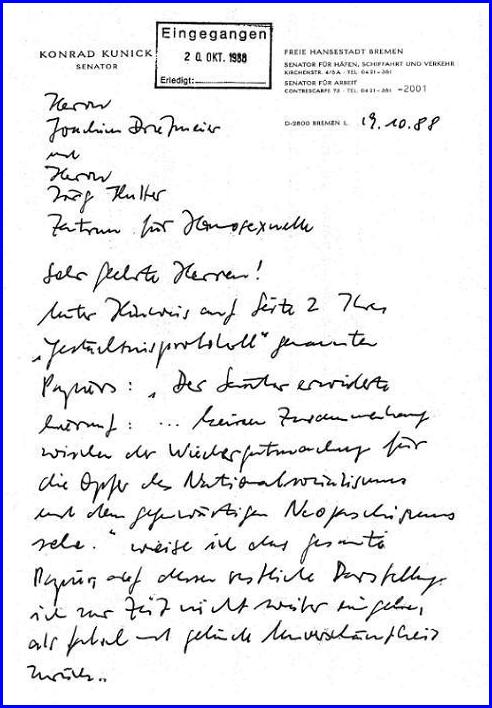 KONRAD KUNICK
SENATOR
Eingegangen
20. OKT. 1988
Erledigt:
FREIE HANSESTADT BREMEN
SENATOR FÜR HÄFEN, SCHIFFAHRT UND VERKEHR
KIRCHENSTR. 4/5A · TEL. 0421-361
SENATOR FÜR ARBEIT
CONTRESCARPE 72 · TEL. 0421-361 -2001
D-2800 BREMEN 1, 19.10.88
Herrn
Joachim
und
Herrn
Jörg Hutter
Zentrum für Homosexuelle
Sehr geehrte Herren!
Unter Hinweis auf Seite 2 Ihres
„Gedächtnisprotokoll“ genannten
Papiers: „Der Senator erwiderte
hierauf: ... keinen Zusammenhang
zwischen der Wiedergutmachung für
die Opfer des Nationalsozialismus
und dem gegenwärtigen Neofaschismus
sehe.“ weise ich das gesamte
Papier, auf dessen restliche Darstellung
ich zur Zeit nicht weiter eingehe,
als falsch und gelinde Unverschämtheit
zurück..